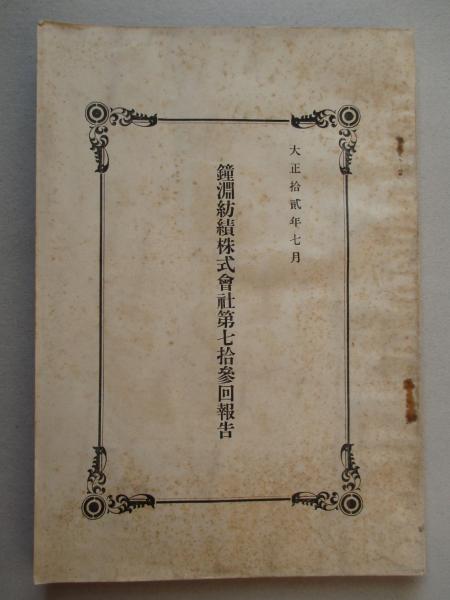 大正拾貳年七月
鐘淵紡績株式會社第七拾參回報告